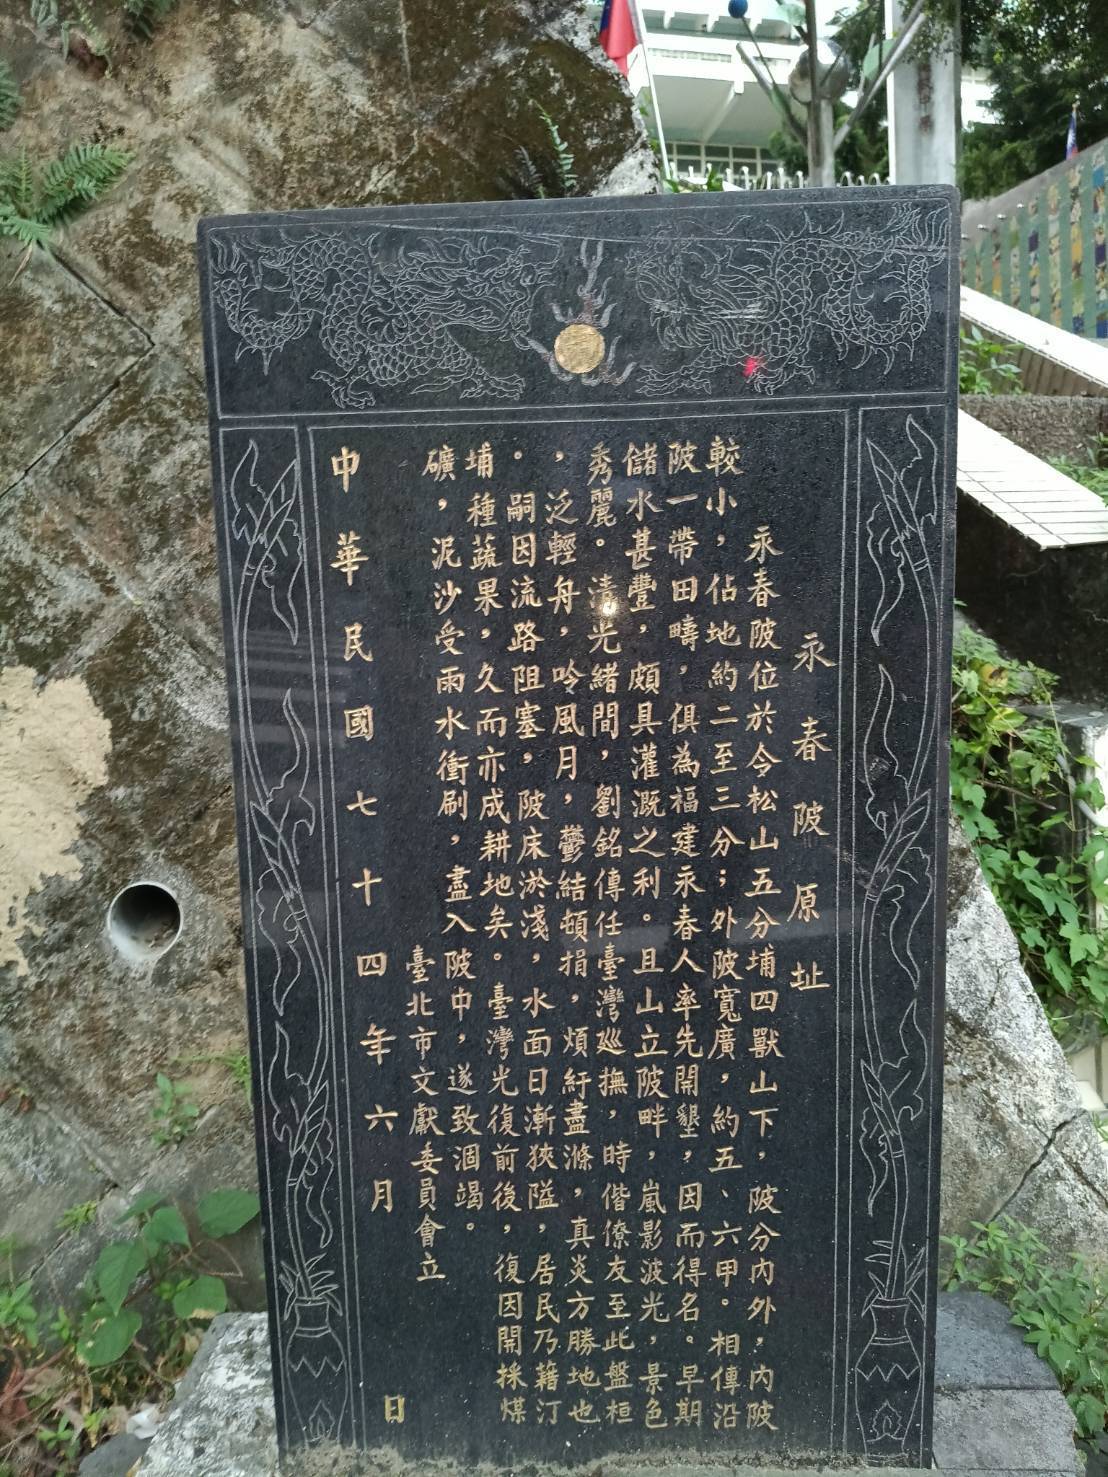 永春陂原址
永春陂位於今松山五分埔四獸山下，陂分內外，內陂
較小，佔地約二至三分；外陂寬廣，約五、六甲。相傳沿
陂一帶田疇，俱為福建永春人率先開墾，因而得名。早期
儲水甚豐，頗具灌溉之利。且山立陂畔，嵐影波光，景色
秀麗。清光緒間，劉銘傳任臺灣巡撫，時偕僚友至此盤桓
，泛輕舟，吟風月，鬱結頓捐，煩紆盡滌，真炎方勝地也
。嗣因流路阻塞，陂床淤淺，水面日漸狹隘，居民乃藉汀
埔種蔬果，久而亦成耕地矣。臺灣光復前後，復因開採煤
礦，泥沙受雨水衝刷，盡入陂中，遂致涸竭。
臺北市文獻委員會立
中華民國七十四年六月　日